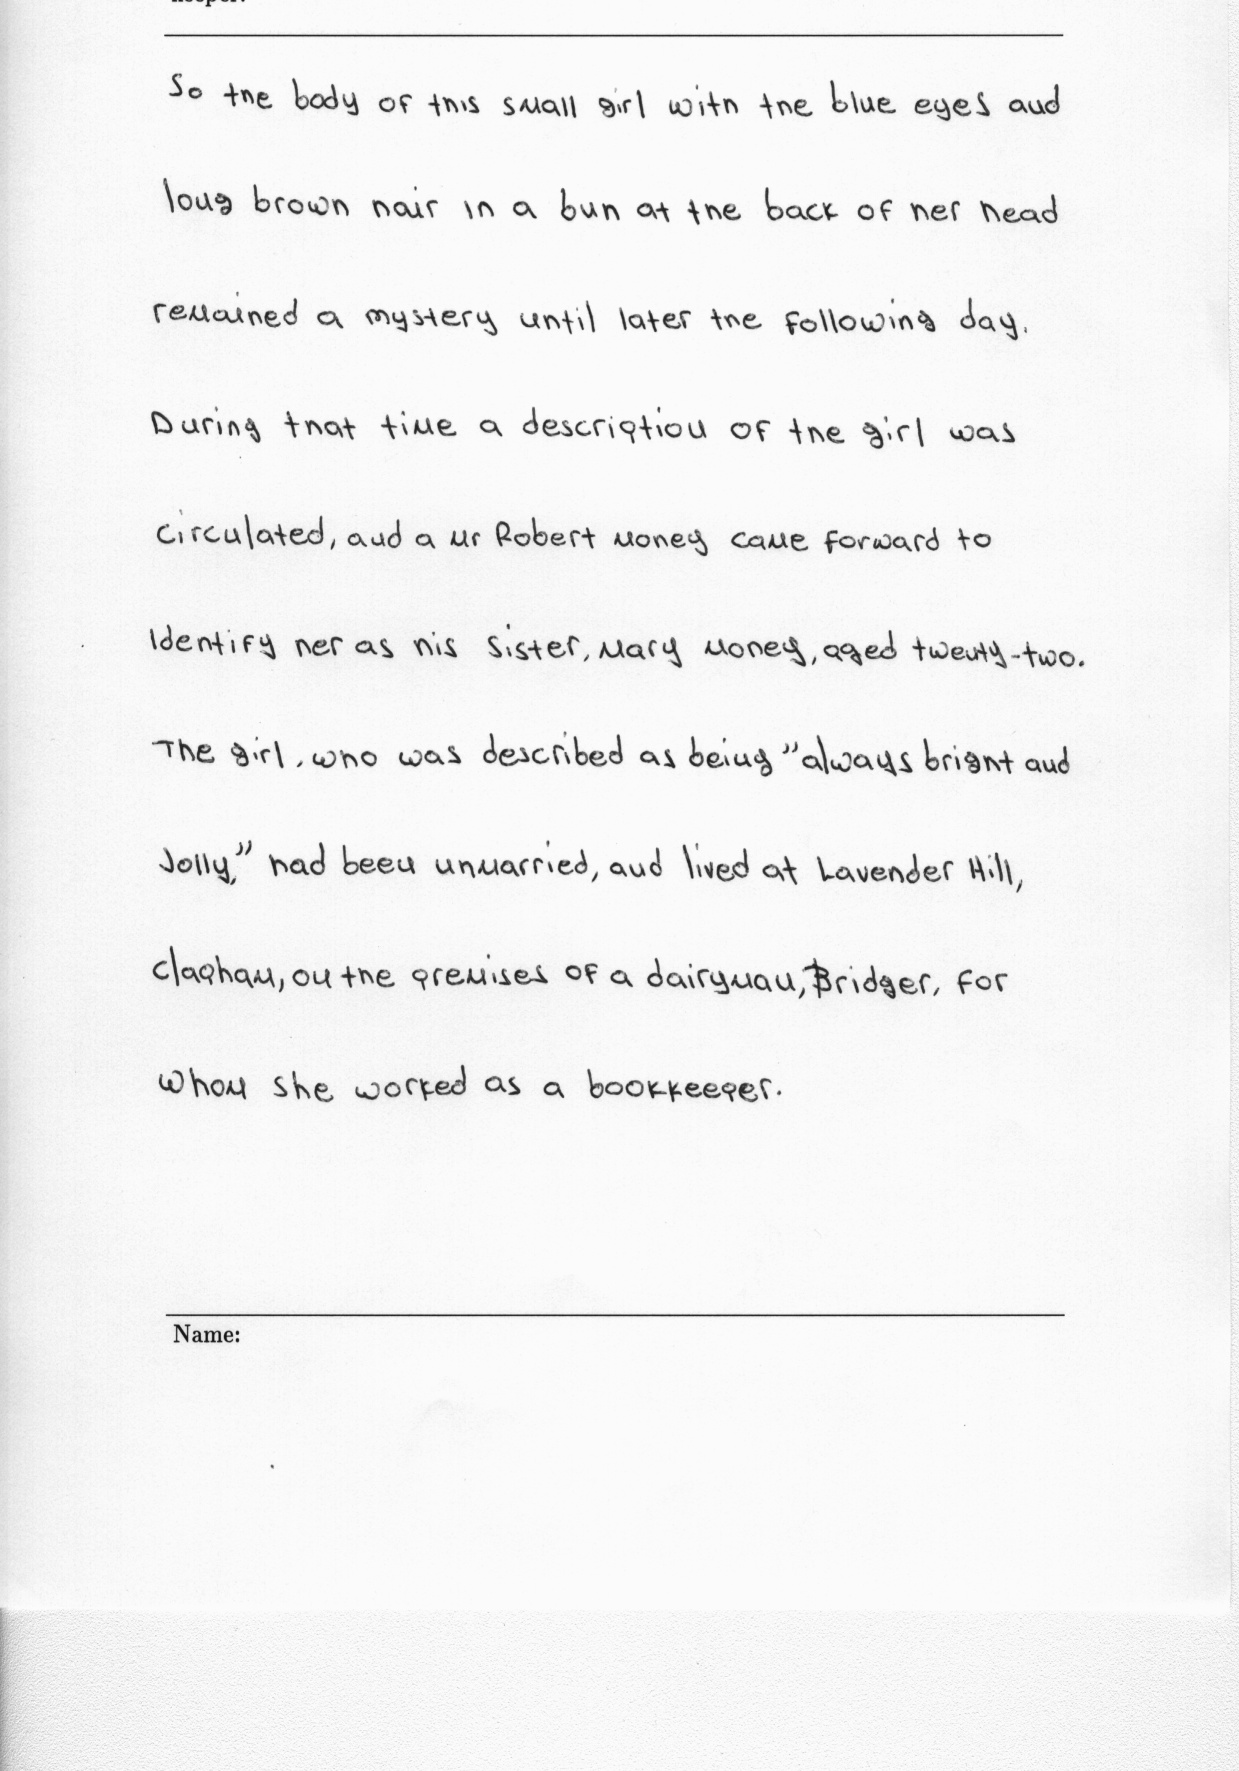 So the body of this small girl with the blue eyes and
long brown hair in a bun at the back of her head
remained a mystery until later the following day.
During that time a description of the girl was
circulated, and a Mr Robert Money came forward to
identify her as his sister, Mary Money, aged twenty-two.
The girl, who was described as being "always bright and
Jolly," had been unmarried, and lived at Lavender Hill,
Clapham, on the premises of a dairyman, Bridger, for
whom she worked as a bookkeeper.
Name: